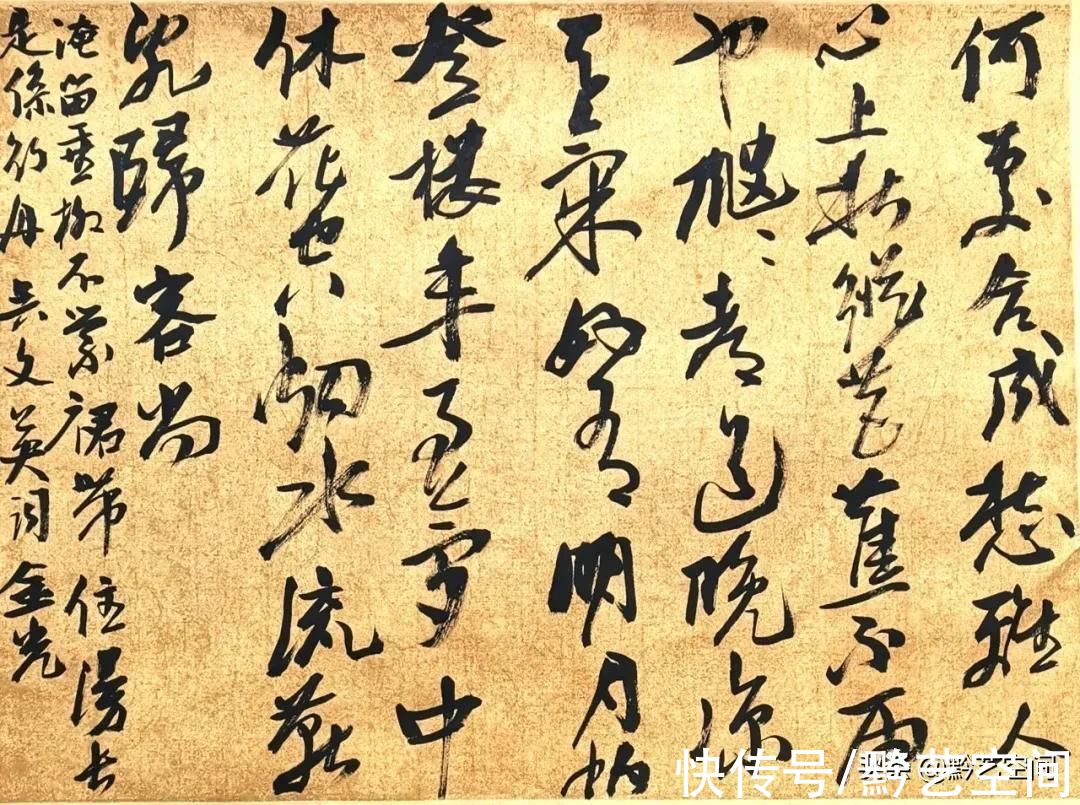 何處合成愁離人
心上秋縱芭蕉不雨
也颼々都道晚涼
天氣好有明月怕
登樓年事夢中
休花空烟水流燕
辭歸客尚
淹留垂柳不縈裙帶住漫長
是係行舟吳文英詞金光
快传号/黔艺空间
@黔艺空间